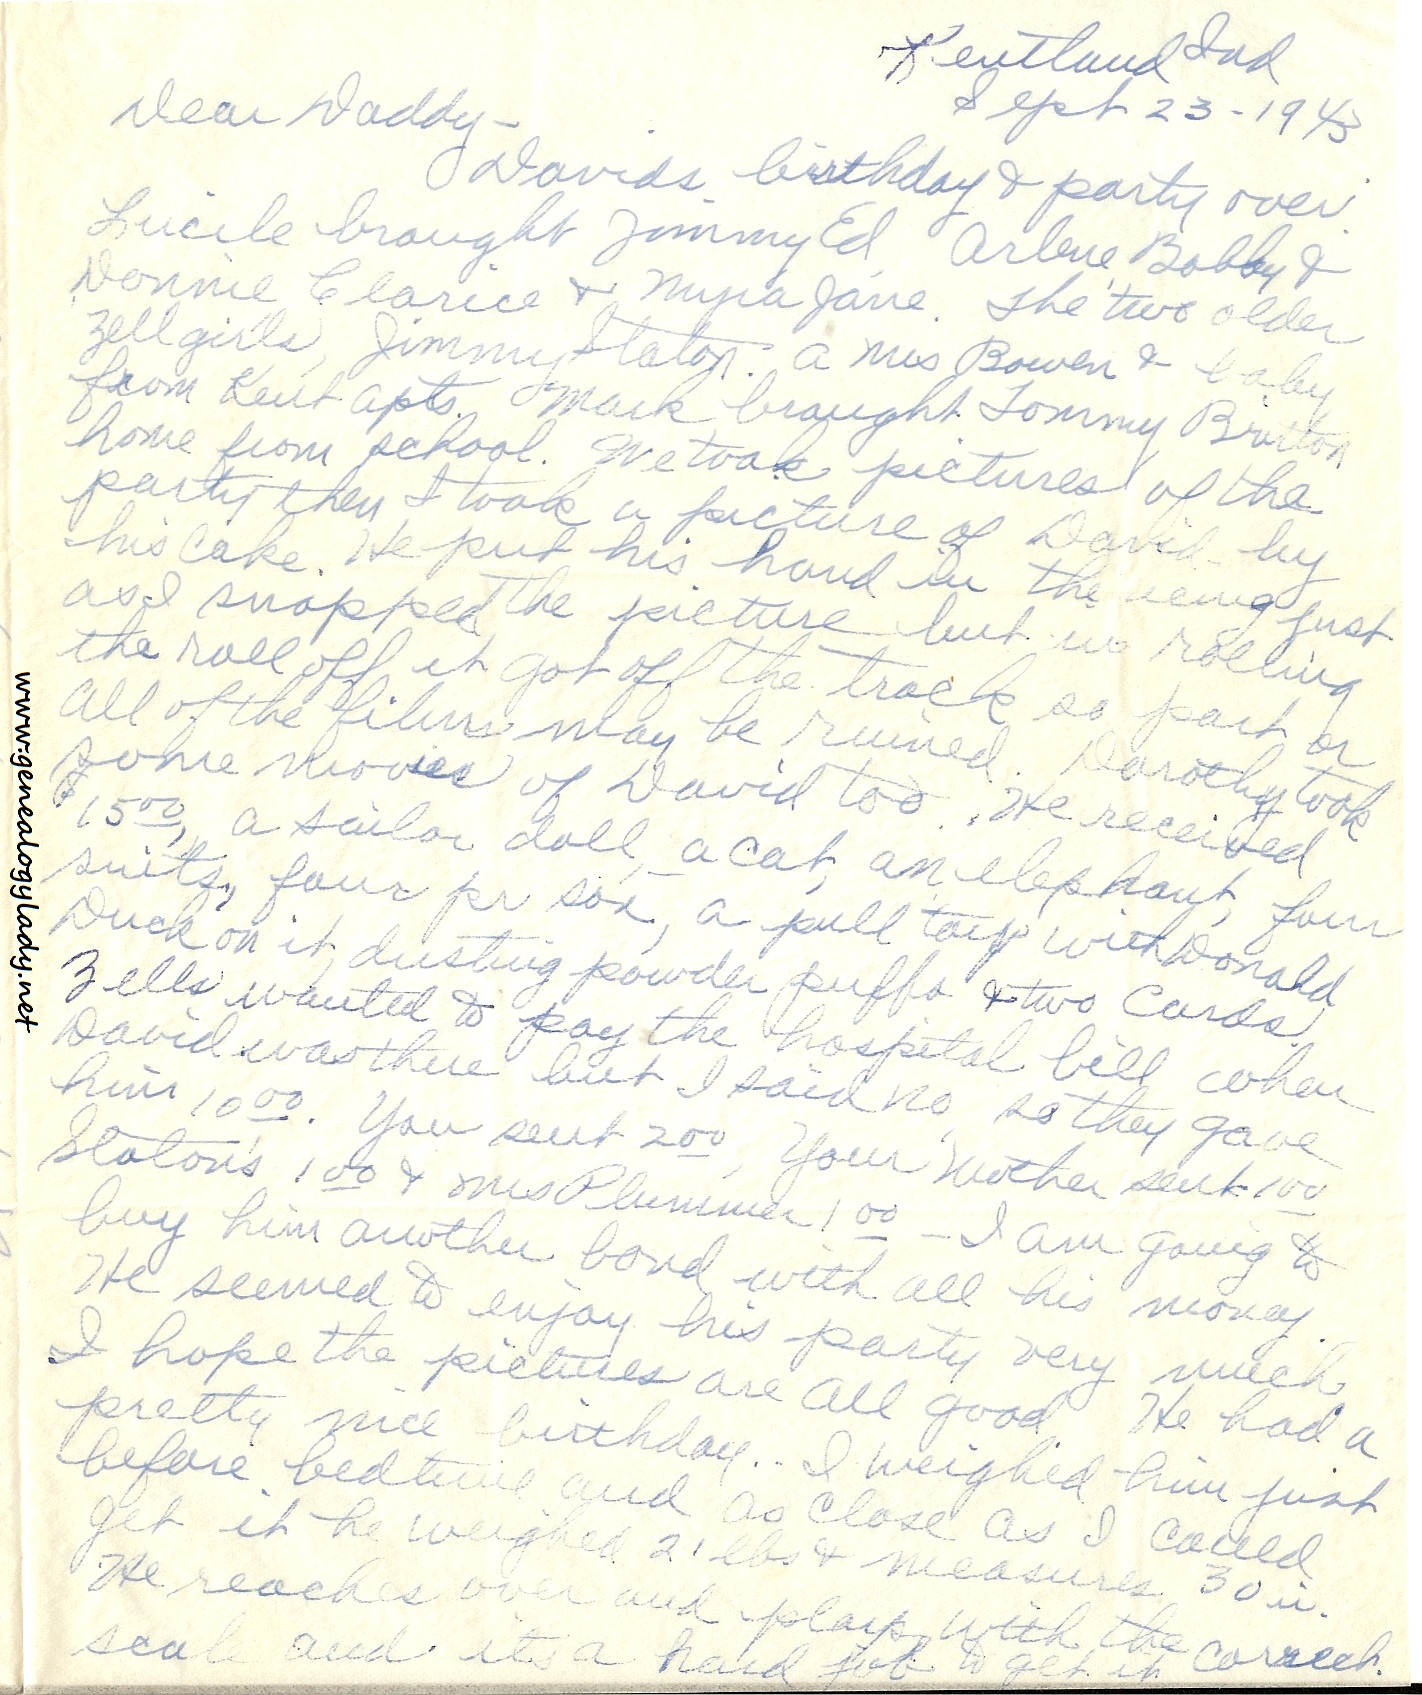 Kentland Ind
Sept 23 - 1943
Dear Daddy -
Davids birthday & party over
Lucile brought Jimmy Ed, Arlene Bobby &
Donnie Clarice & Myra Jane. The two older
Zell girls, Jimmy Staton. a Mrs Bowen & baby
from Kent apts. Mark brought Tommy Britton
home from school. We took pictures of the
party then I took a picture of David by
his cake. He put his hand in the icing just
as I snapped the picture but in rolling
the roll off it got off the track so part or
all of the films may be ruined. Dorothy took
some movies of David too. He received
$15.00, a sailor doll, a cat, an elephant, four
suits, four pr sox, a pull toy with Donald
Duck on it, dusting powder puffs & two cards.
Zells wanted to pay the hospital bill when
David was there but I said no, so they gave
him 10 00. You sent 2 00, Your Mother sent 1 00
Staton's 1 00 & Mrs Plummer 1 00 - I am going to
buy him another bond with all his money.
He seemed to enjoy his party very much
I hope the pictures are all good He had a
pretty nice birthday.. I weighed him just
before bedtime and as close as I could
get it he weighed 21 lbs & measures 30 in.
He reaches over and plays with the
scale and its a hard job to get it correct.
www.genealogylady.net